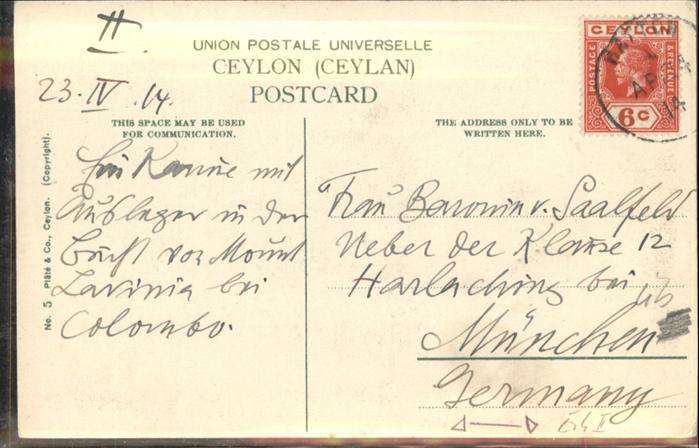 II
UNION POSTALE UNIVERSELLE
CEYLON (CEYLAN)
POSTCARD
23.IV.14.
THIS SPACE MAY BE USED
FOR COMMUNICATION.
THE ADDRESS ONLY TO BE
WRITTEN HERE.
CEYLON
POSTAGE
REVENUE
6c
AP
14
Ein Kanne mit
Ausleger in der
Bucht von Mount
Lavinia bei
Colombo.
Frau Baronin v. Saalfeld
Ueber der Klause 12
Harlaching bei
München
Germany
No. 5 Plâté & Co., Ceylon. (Copyright).